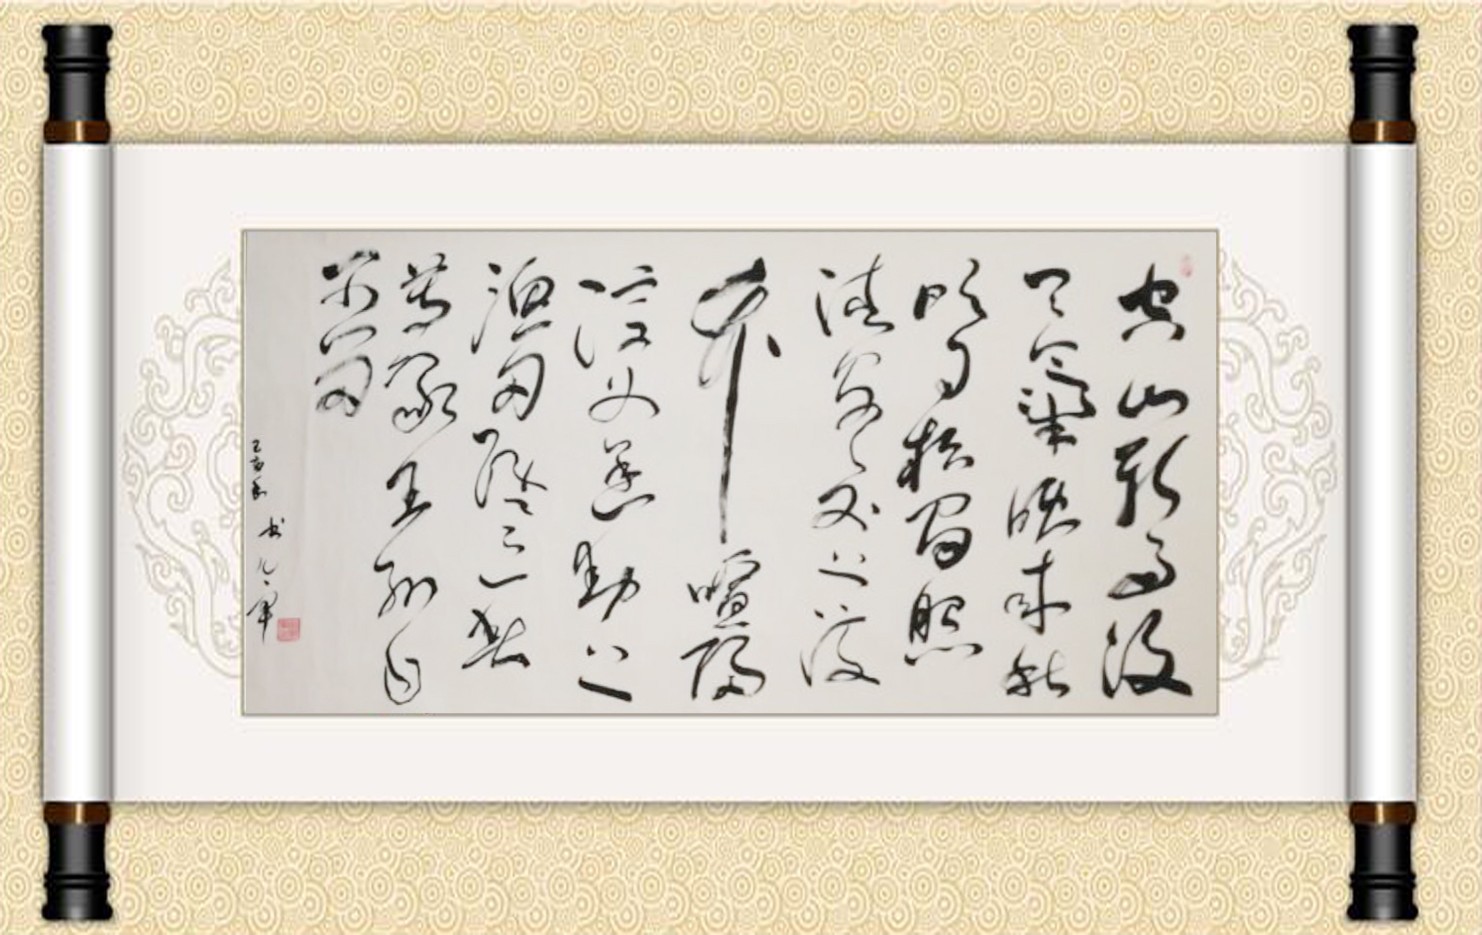 空山新雨後
天氣晚來秋
明月松間照
清泉石上流
竹喧歸
浣女蓮動下
漁舟隨意春
芳歇王孫自
可留
己亥 书